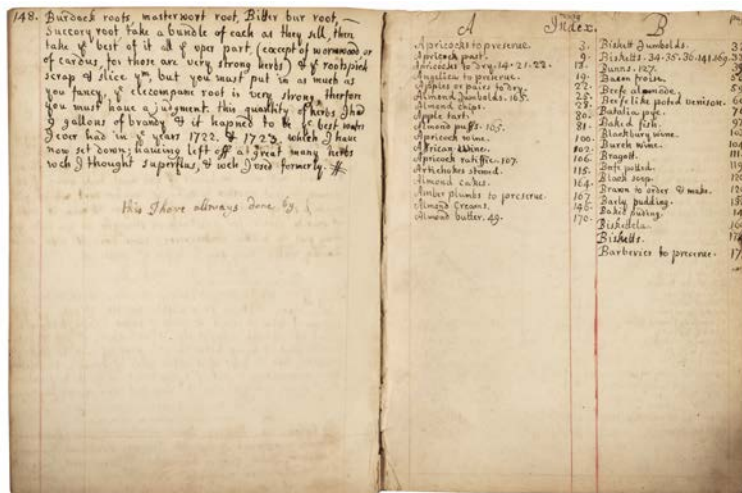 148. Burdock roots, masterwort root, Bitter bur root,
Succory root take a bundle of each as they sell, then
take yᵉ best of it all yᵉ oper part, (except of wormwood or
of cardus, for those are very strong herbs) & yᵉ roots pick
scrap & slice yᵐ, but you must put in as much as
you fancy, yᵉ elecompane root is very strong therfore
you must have a judgment. this quantity of herbs I had
9 gallons of brandy & it hapned to be yᵉ best water
I ever had in yᵉ years 1722. & 1723. which I have
now set down; hauing left off a great many herbs
wch I thought supriflus, & wch I vsed formerly.
this I have allways done by
Index.
A
Apricocks to preserve. 3.
Apricock past. 9.
Apricocks to Dry. 14. 21. 22. 13.
Angelica to preserve. 19.
Apples or paires to Dry. 22.
Almond Jumbolds. 165. 25.
Almond chips. 28.
Apple tart. 80.
Almond puffs. 165. 81.
Apricock wine. 100.
Affrican Wine. 102.
Apricock ratiffie. 107. 106.
Artichokes stwod. 115.
Almond cakes. 164.
Amber plumbs to preserve. 167
Almond Creams. 146.
Almond butter. 49. 170.
B
Biskett Jumbolds.
Bisketts. 34. 35. 36. 141. 169.
Bunns. 127.
Bacon froise.
Beefe alamode.
Beefe like poted venison.
Batalia pye.
Baked fish.
Blackbury wine.
Burch wine.
Bragott.
Beefe potted.
Black soap.
Brawn to order & make.
Barly pudding.
Baked puding.
Biskedela.
Bisketts.
Barberies to preserve.